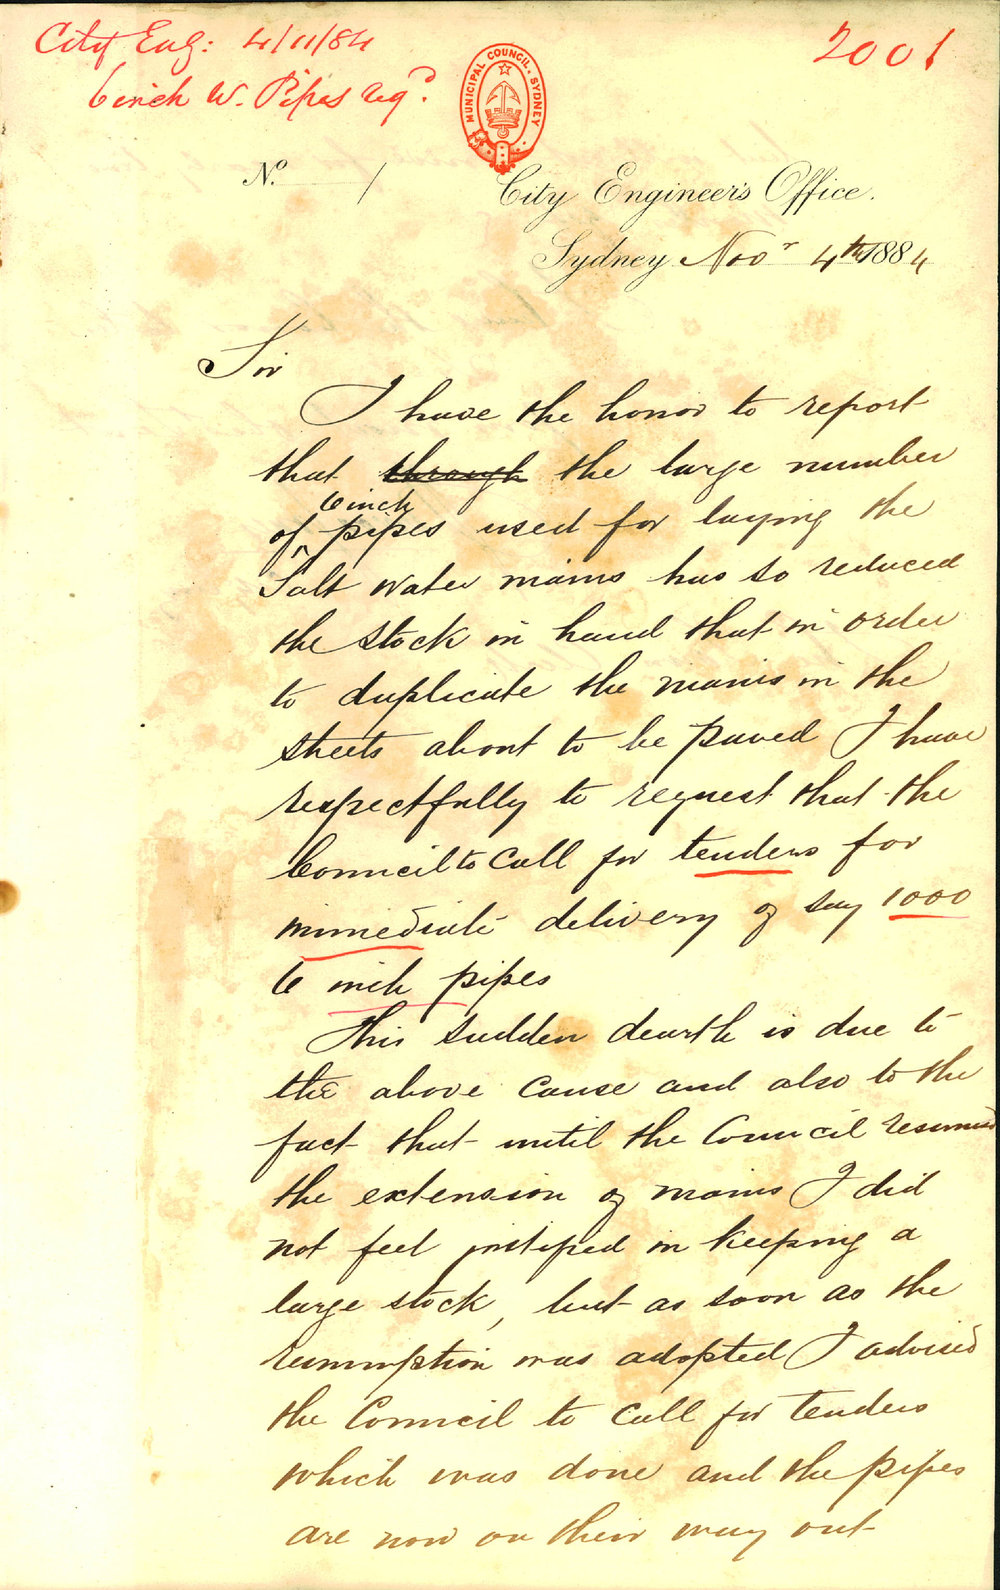 City Eng: 4/11/84
2001
6 inch W. Pipes req.d
MUNICIPAL COUNCIL. SYDNEY
No. /
City Engineer's Office.
Sydney Novr 4th 1884
Sir
I have the honor to report
that through the large number
6 inch
of pipes used for laying the
Salt water mains has so reduced
the stock in hand that in order
to duplicate the mains in the
streets about to be paved I have
respectfully to request that the
Council to call for tenders for
immediate delivery of say 1000
6 inch pipes
This sudden dearth is due to
the above cause and also to the
fact that until the Council resumed
the extension of mains I did
not feel justified in keeping a
large stock, but as soon as the
resumption was adopted I advised
the Council to call for tenders
which was done and the pipes
are now on their way out